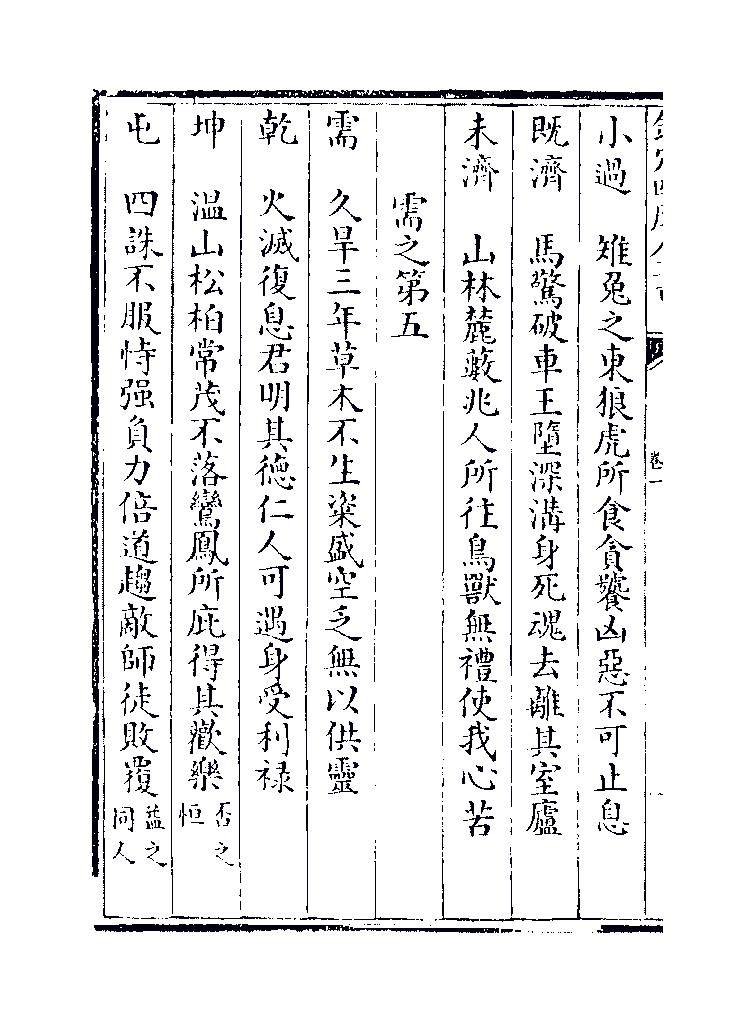 小過　雉兔之東狼虎所食貪饕凶惡不可止息
既濟　馬驚破車王墮深溝身死魂去離其室廬
未濟　山林麓藪兆人所往鳥獸無禮使我心苦
需之第五
需　久旱三年草木不生粢盛空乏無以供靈
乾　火滅復息君明其德仁人可遇身受利祿
坤　温山松柏常茂不落鸞鳳所庇得其歡樂否之恒
屯　四誅不服恃强負力倍道趨敵師徒敗覆益之同人
卷一